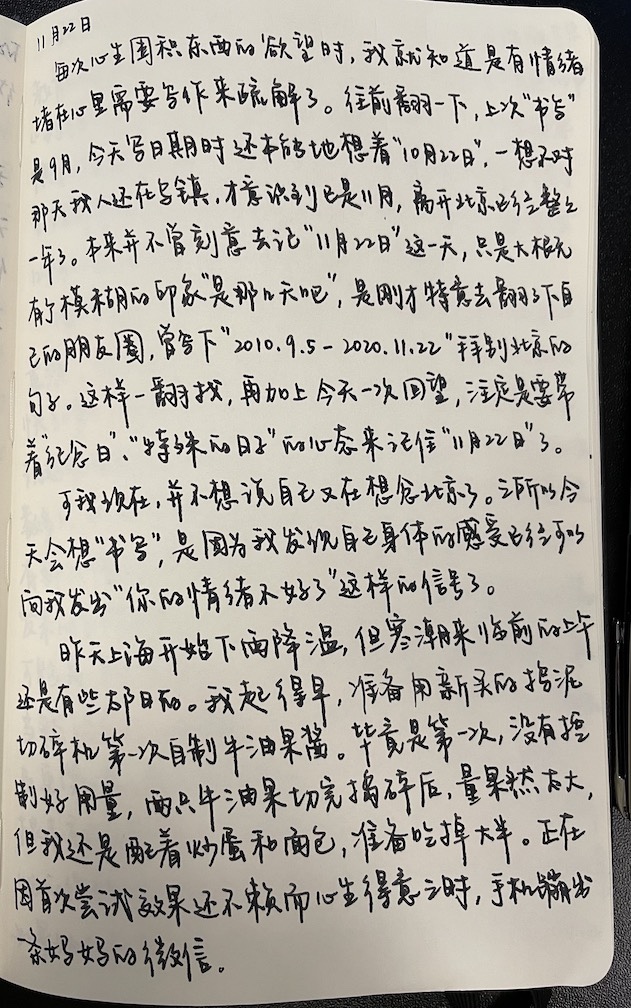 11月22日
每次心生囤积东西的欲望时，我就知道是有情绪
堵在心里需要写作来疏解了。往前翻一下，上次“书写”
是9月，今天写日期时还本能地想着“10月22日”，一想不对
那天我人还在乌镇，才意识到已是11月，离开北京已经整整
一年了。本来并不曾刻意去记“11月22日”这一天，只是大概
有个模糊的印象“是那几天吧”，是刚才特意去翻了下自
己的朋友圈，曾写下“2010.9.5－2020.11.22”拜别北京的
句子。这样一翻找，再加上今天一次回望，注定是要带
着“纪念日”、“特殊的日子”的心态来记住“11月22日”了。
可我现在，并不想说自己又在想念北京了。之所以今
天会想“书写”，是因为我发现自己身体的感受已经可以
向我发出“你的情绪不好了”这样的信号了。
昨天上海开始下雨降温，但寒潮来临前的上午
还是有些太阳的。我起得早，准备用新买的捣泥
切碎机第一次自制牛油果酱。毕竟是第一次，没有控
制好用量，两只牛油果切完捣碎后，量果然太大，
但我还是配着炒蛋和面包，准备吃掉大半。正在
因首次尝试效果还不赖而心生得意之时，手机蹦出
一条妈妈的微信。